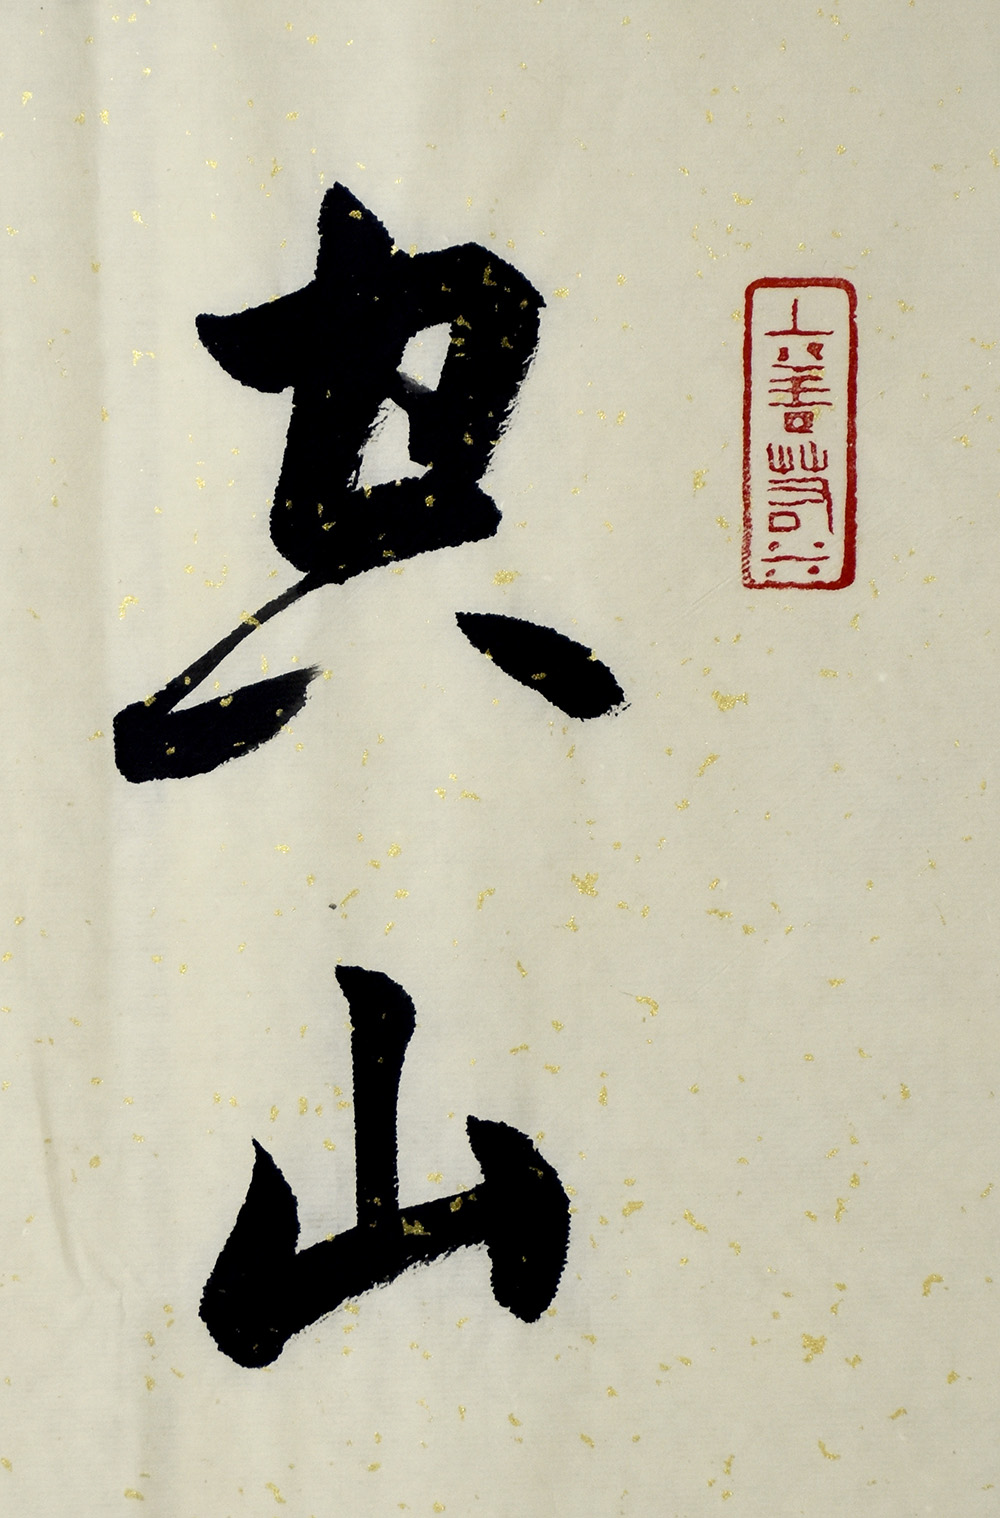 山
上善若水